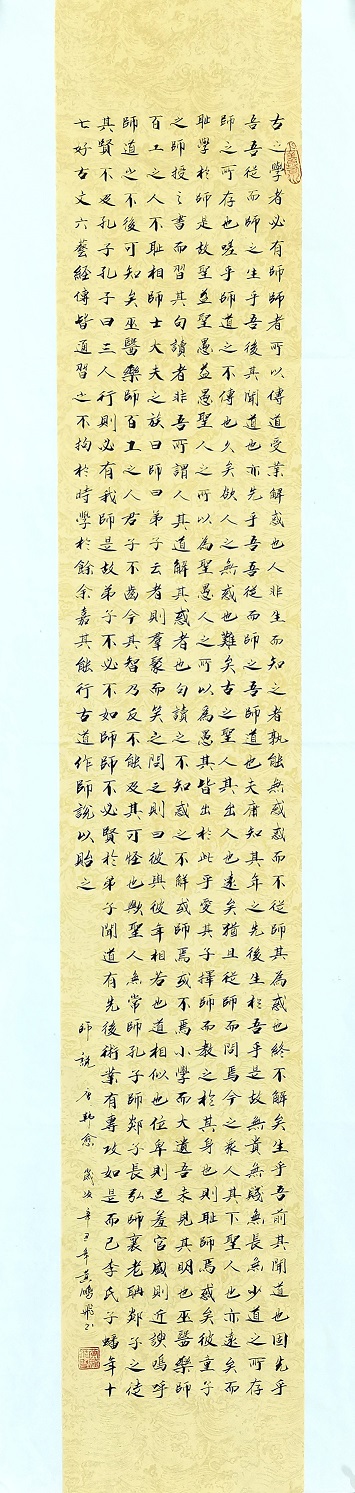 古之學者必有師師者所以傳道受業解惑也人非生而知之者孰能無惑惑而不從師其為惑也終不解矣生乎吾前其聞道也固先乎
吾吾從而師之生乎吾後其聞道也亦先乎吾吾從而師之吾師道也夫庸知其年之先後生於吾乎是故無貴無賤無長無少道之所存
師之所存也嗟乎師道之不傳也久矣欲人之無惑也難矣古之聖人其出人也遠矣猶且從師而問焉今之衆人其下聖人也亦遠矣而
恥學於師是故聖益聖愚益愚聖人之所以為聖愚人之所以為愚其皆出於此乎愛其子擇師而教之於其身也則恥師焉惑矣彼童子
之師授之書而習其句讀者非吾所謂人其道解其惑者也句讀之不知惑之不解或師焉或不焉小學而大遺吾未見其明也巫醫樂師
百工之人不恥相師士大夫之族曰師曰弟子云者則羣聚而笑之問之則曰彼與彼年相若也道相似也位卑則足羞官盛則近諛嗚呼
師道之不復可知矣巫醫樂師百工之人君子不齒今其智乃反不能及其可怪也歟聖人無常師孔子師郯子萇弘師襄老聃郯子之徒
其賢不及孔子孔子曰三人行則必有我師是故弟子不必不如師師不必賢於弟子聞道有先後術業有專攻如是而已李氏子蟠年十
七好古文六藝經傳皆通習之不拘於時學於餘余嘉其能行古道作師說以貽之
師說 唐韓愈 歲次辛丑年黃鵬飛书